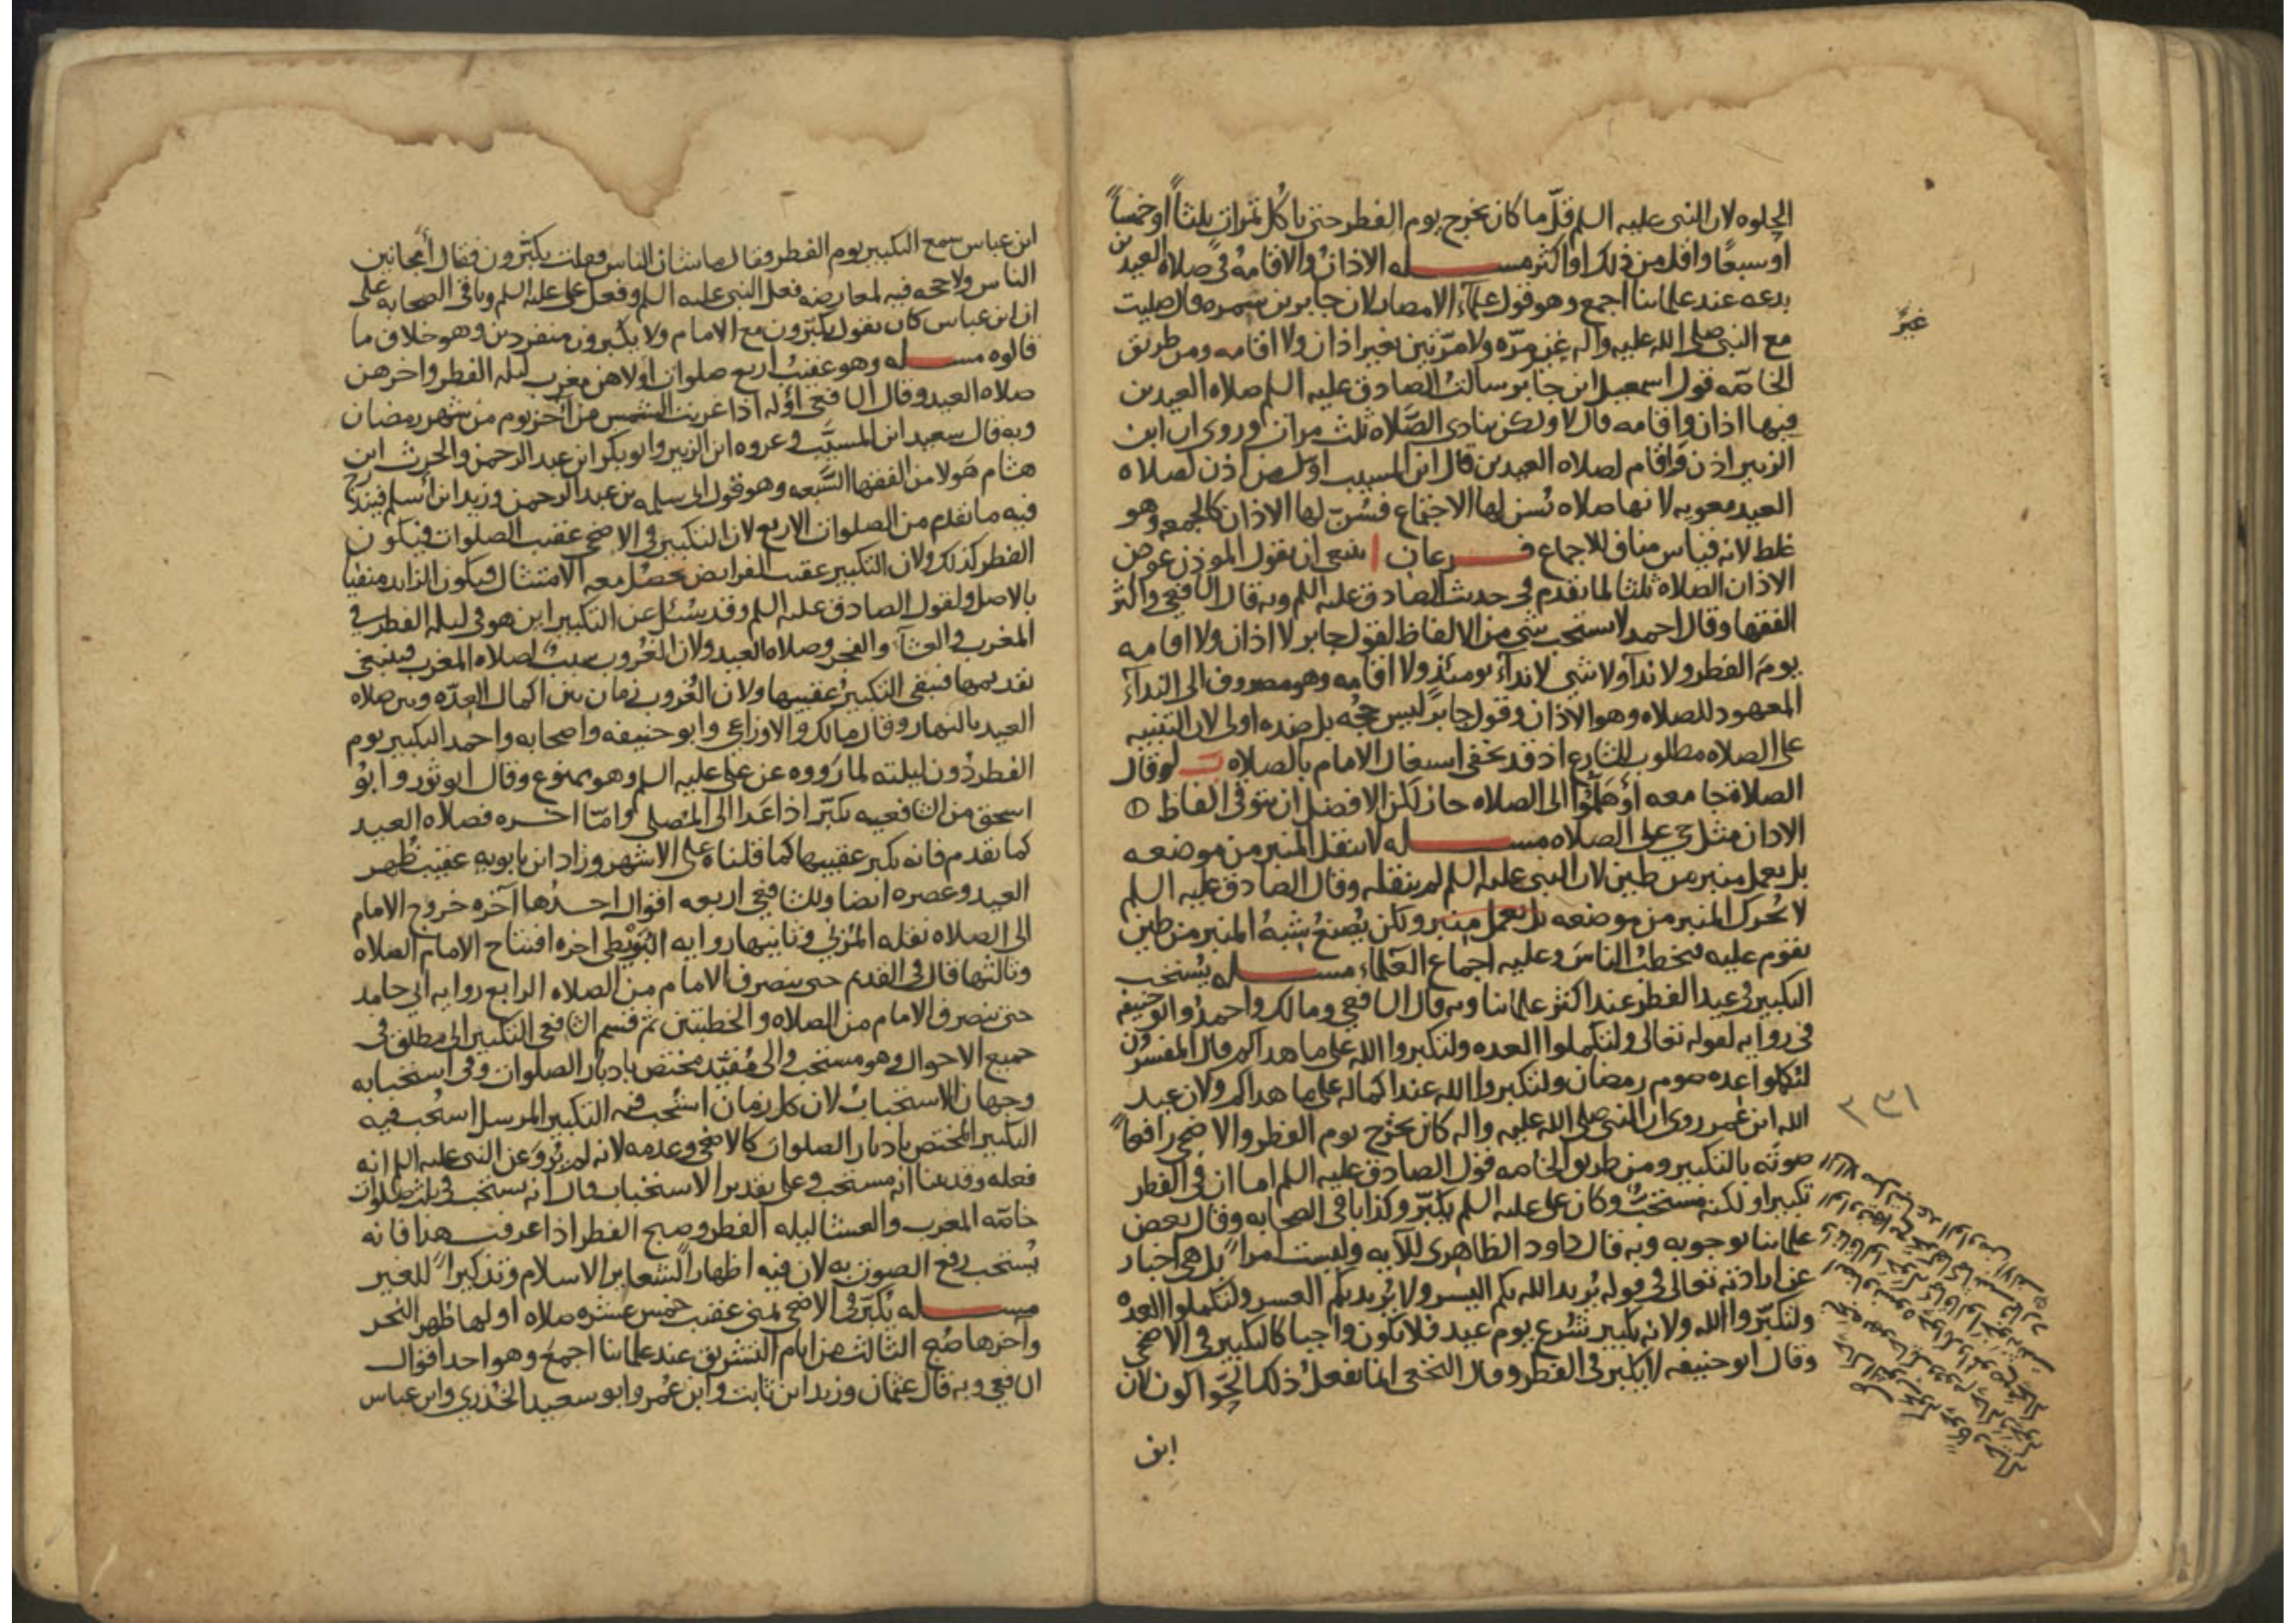 الحلوه لان النبى عليه السلم قلّ ما كان يخرج يوم الفطر حتى ياكل تمرات ثلثاً او خمساً
او سبعًا واقل من ذلك او اكثر مســله الاذان والاقامه فى صلاه العيدين
بدعه عند علمائنا اجمع وهو قول علماء الامصار لان جابر بن سمره قال صليت
مع النبى صلى الله عليه واله غير مرّه ولا مرّتين بغير اذان ولا اقامه ومن طريق
الخاصّه قول اسمعيل ابن جابر سالت الصادق عليه السلم صلاه العيدين
فيها اذان واقامه قال لا ولكن ينادى الصّلاه ثلث مرات وروى ان ابن
الزبير اذن واقام لصلاه العيدين قال ابن المسيب اول من اذن لصلاه
العيد معويه لانها صلاه تسن لها الاجتماع فسُنّ لها الاذان كالجمعه وهو
غلط لانه قياس مناف للاجماع فــرعان ا ينبغى ان يقول الموذن عوض
الاذان الصلاه ثلثا لما تقدم فى حديث الصادق عليه السلم وبه قال الشافعى واكثر
الفقها وقال احمد لا يستحب شى من الالفاظ لقول جابر لا اذان ولا اقامه
يوم الفطر ولا ندآ ولا شى لا ندآء يومئذ ولا اقامه وهو مصروف الى الندآء
المعهود للصلاه وهو الاذان وقول جابر ليس حجّه بل ضده اولى لان التنبيه
على الصلاه مطلوب للشارع اذ قد يخفى اشتغال الامام بالصلاه ب لو قال
الصلاة جامعه او هَلُمّوا الى الصلاه جاز لكن الافضل ان يتوقى الفاظ
الاذان مثل حى على الصلاه مســله لا ينقل المنبر من موضعه
بل يعمل منبر من طين لان النبى عليه السلم لم ينقله وقال الصادق عليه السلم
لا يُحرك المنبر من موضعه بل يعمل منبر ولكن يُصنع شبهُ المنبر من طين
يقوم عليه يخطب الناس وعليه اجماع العلماء مســله يُستحب
التكبير فى عيد الفطر عند اكثر علمائنا وبه قال الشافعى ومالك واحمد وابو حنيفه
فى روايه لقوله تعالى ولتكملوا العده ولتكبروا الله على ما هداكم قال المفسرون
لتكملوا عده صوم رمضان ولتكبروا الله عند اكماله على ما هداكم ولان عبد
الله ابن عمر روى ان النبى صلى الله عليه واله كان يخرج يوم الفطر والاضحى رافعاً
صوته بالتكبير ومن طريق الخاصه قول الصادق عليه السلم اما ان فى الفطر
تكبيرا ولكنه مستحبٌ وكان على عليه السلم يكبّر وكذا باقى الصحابه وقال بعض
علمائنا بوجوبه وبه قال داود الظاهرى للآيه وليست امراً بل هى اخبار
عن ارادته تعالى فى قوله يُريد الله بكم اليسر ولا يُريد بكم العسر ولتكملوا العده
ولتكبّروا الله ولانه تكبير شُرع يوم عيد فلا يكون واجبا كالتكبير فى الاضحى
وقال ابو حنيفه لا يكبر فى الفطر وقال النخعى انما يفعل ذلك الحوّاكون لان
ابن
غيرَ
٢٣١
ابن عباس سمع التكبير يوم الفطر فقال ما شان الناس فقلت يكبّرون فقال أمجانين
الناس ولا حجه فيه لمعارضه فعل النبى عليه السلم وفعل على عليه السلم وباقى الصحابه على
ان ابن عباس كان يقول يكبّرون مع الامام ولا يكبرون منفردين وهو خلاف ما
قالوه مســله وهو عقيب اربع صلوات اولاهن مغرب ليله الفطر واخرهن
صلاه العيد وقال الشافعى اوّله اذا غربت الشمس من آخر يوم من شهر رمضان
وبه قال سعيد ابن المسيَّب وعروه ابن الزبير وابو بكر ابن عبد الرحمن والحرث ابن
هشام هولا من الفقها السّبعه وهو قول ابى سلمه بن عبد الرحمن وزيد ابن اسلم فيندرج
فيه ما تقدم من الصلوات الاربع لان التكبير فى الاضحى عقيب الصلوات فيكون
الفطر كذلك ولان التكبير عقيب الفرايض يحصُل معه الامتثال فيكون الزايد منفيا
بالاصل ولقول الصادق عليه السلم وقد سُئل عن التكبير اين هو فى ليله الفطر فى
المغرب والعشآء والفجر وصلاه العيد ولان الغُروب سبب لصلاه المغرب فينبغى
تقديمها فيبقى التكبيرُ عقيبها ولان الغُروب زمان بين اكمال العدّه وبين صلاه
العيد بالنهار وقال مالك والاوزاعى وابو حنيفه واصحابه واحمد التكبير يوم
الفطر دُون ليلته لما رَووه عن على عليه السلم وهو ممنوع وقال ابو ثور وابوُ
اسحق من الشافعيه يكبّر اذا غدا الى المصلى وامّا اخــره فصلاه العيد
كما تقدم فانه يكبر عقيبها كما قلناه على الاشهر وزاد ابن بابويه عقيب ظُهر
العيد وعصره ايضا وللشافعى اربعه اقوال احــدُها آخره خروج الامام
الى الصلاه نقله المُزنى وثانيها روايه البُوَيْطى اخره افتتاح الامام الصلاه
وثالثها قال فى القديم حتى ينصرف الامام من الصلاه الرابع روايه ابى حامد
حتى ينصرف الامام من الصلاه والخطبتين ثم قسم الشافعى التكبير الى مطلق فى
جميع الاحوال وهو مستحب والى مُقيّد مختص بادبار الصلوات وفى استحبابه
وجهان الاستحبابُ لان كل زمان استُحب فيه التكبير المرسل استُحب فيه
التكبير المختص بادبار الصلوات كالاضحى وعدمه لانه لم يُروَ عن النبى عليه السلم انه
فعله وقد بينا انه مستحب وعلى تقدير الاستحباب قال انه يستحب فى ثلث صلوات
خاصّه المغرب والعشا ليله الفطر وصبح الفطر اذا عرفت هذا فانه
يُستحب رفع الصوت به لان فيه اظهاراً لشعاير الاسلام وتذكيراً للغير
مســله يُكبّر فى الاضحى لمن بمنى عقيب خمس عشره صلاه اولها ظهر النحر
وآخرها صُبح الثالث من ايام التشريق عند علمائنا اجمع وهو احد اقوال
الشافعى وبه قال عثمان وزيد ابن ثابت وابن عُمر وابو سعيد الخُدرى وابن عباس